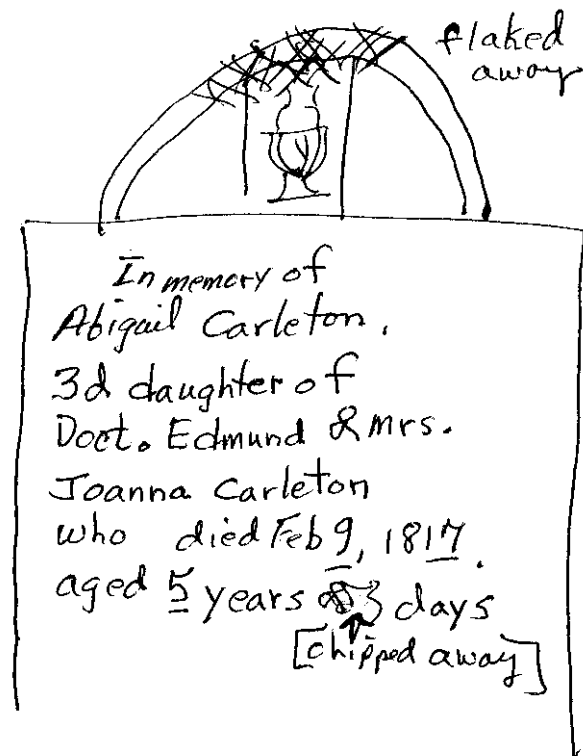 flaked
away
In memory of
Abigail Carleton.
3d daughter of
Doct. Edmund & Mrs.
Joanna Carleton
who died Feb 9, 1817.
aged 5 years & 3 days
[chipped away]